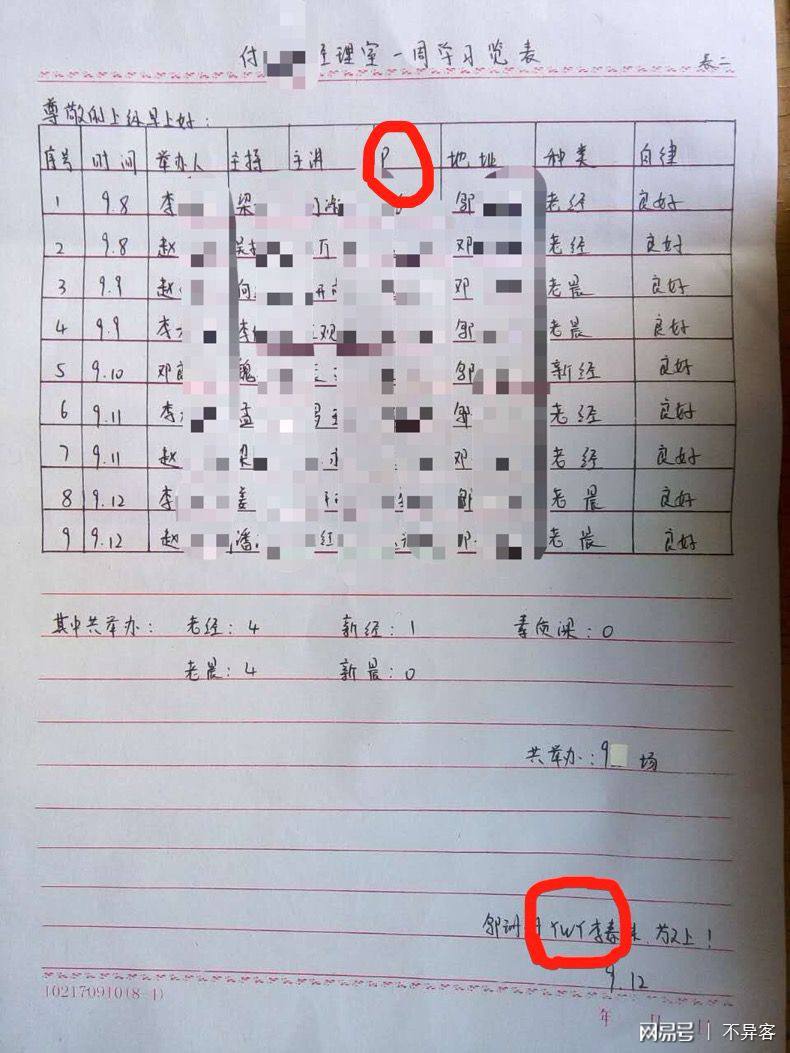 付 经理室一周学习览表
表二
尊敬的上经早上好：
序号 时间 举办人 主持 主讲 P 地址 种类 自律
1 9.8 李 梁 邹 老经 良好
2 9.8 赵 吴 万 邓 老经 良好
3 9.9 赵 向 邓 老晨 良好
4 9.9 李 李 观 邹 老晨 良好
5 9.10 邓良 魏 邹 新经 良好
6 9.11 李 孟 邹 老经 良好
7 9.11 赵 梁 邓 老经 良好
8 9.12 李 姜 邹 老晨 良好
9 9.12 赵 潘 经 邓 老晨 良好
其中共举办： 老经：4 新经：1 素质课：0
老晨：4 新晨：0
共举办：9 场
邹 YWY李春 敬上！
9.12
(0217091018-4)
年 月 日
网易号 | 不异客